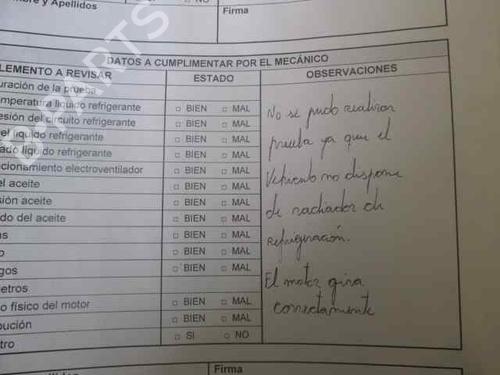 bre y Apellidos
NO
Firma
DATOS A CUMPLIMENTAR POR EL MECÁNICO
LEMENTO A REVISAR ESTADO OBSERVACIONES
uración de la prueba
mperatura líquido refrigerante □ BIEN □ MAL
esión del circuito refrigerante □ BIEN □ MAL
el líquido refrigerante □ BIEN □ MAL
ado líquido refrigerante □ BIEN □ MAL
cionamiento electroventilador □ BIEN □ MAL
el aceite □ BIEN □ MAL
sión aceite □ BIEN □ MAL
do del aceite □ BIEN □ MAL
as □ BIEN □ MAL
o □ BIEN □ MAL
gos □ BIEN □ MAL
etros
o físico del motor □ BIEN □ MAL
bución □ BIEN □ MAL
tro □ SI □ NO
No se pudo realizar
prueba ya que el
Vehiculo no dispone
de radiador de
refrigeración.
El motor gira
correctamente
Firma